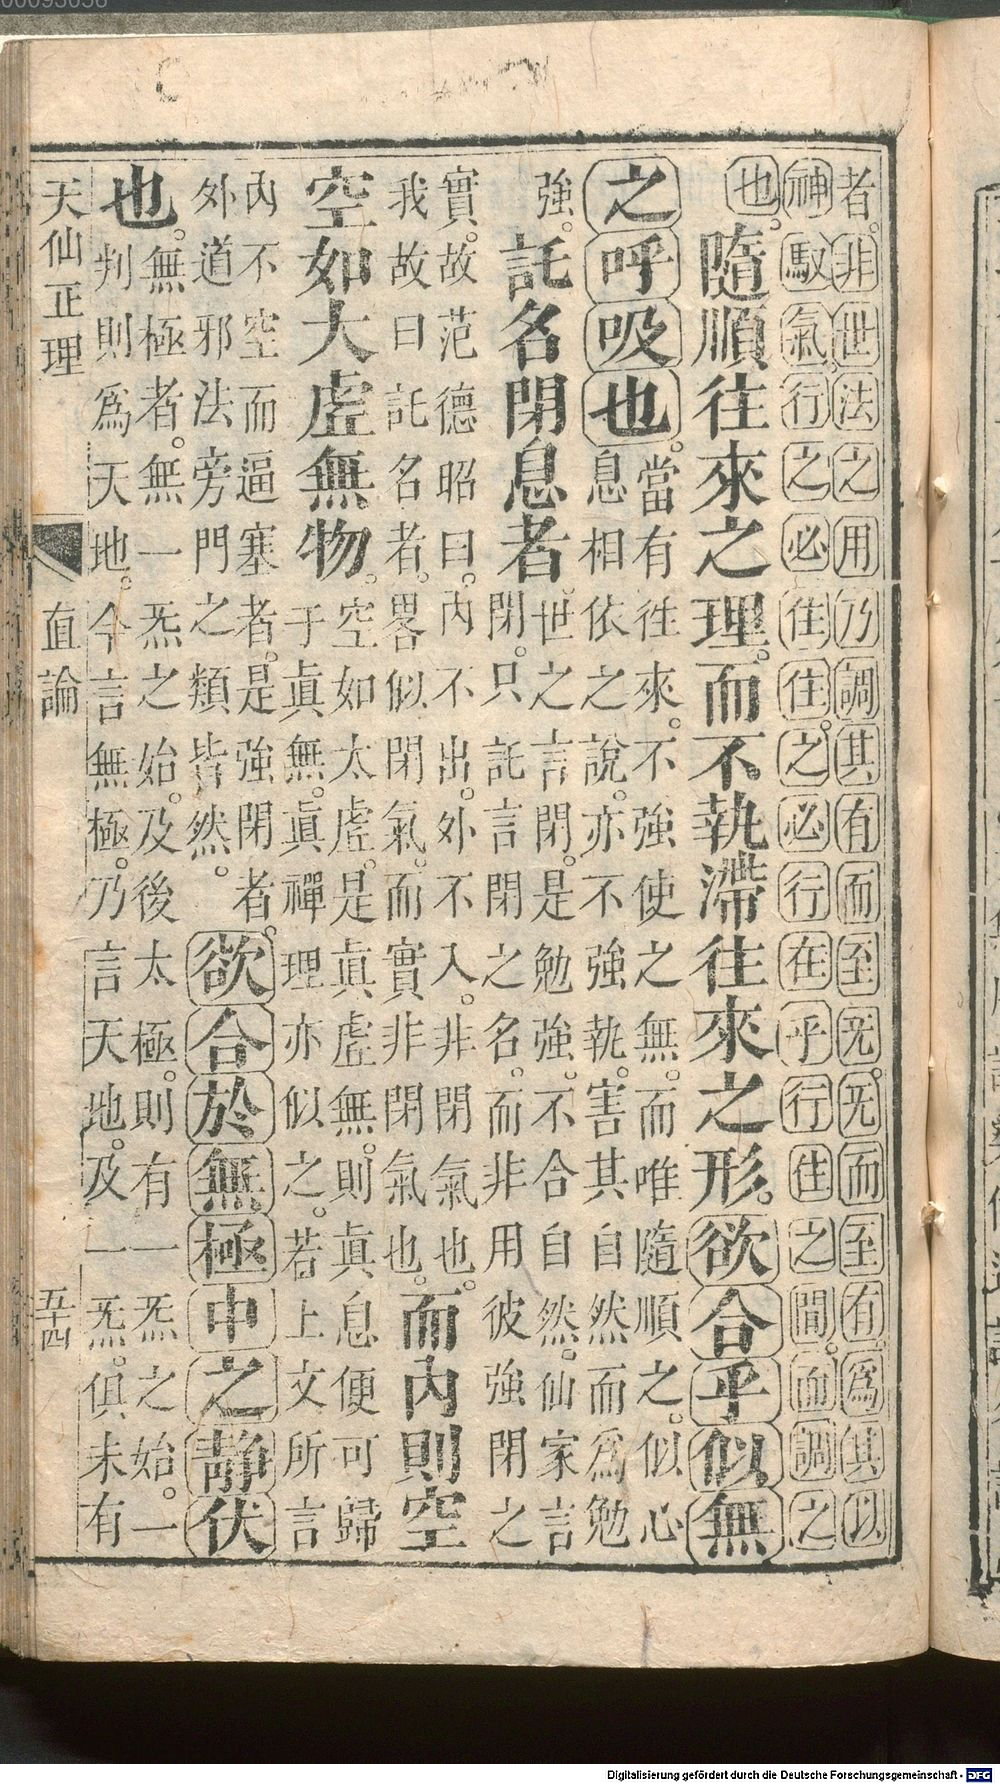 者。非世法之用乃調其有而至旡。旡而至有。爲其以
神馭氣。行之必住。住之必行。在乎行住之間。而調之
也。
隨順往來之理。而不執滯往來之形。欲合乎似無
之呼吸也。
當有往來。不強使之無。而唯隨順之。似心
息相依之說。亦不強執。害其自然而爲勉
強。
託名閉息者。
世之言閉。是勉強。不合自然。仙家言
閉。只託言閉之名。而非用彼強閉之
實。故范德昭曰。內不出。外不入。非閉氣也。
我故曰託名者。畧似閉氣。而實非閉氣也。
而內則空
空如大虛無物。
空如太虛。是眞虛無。則眞息便可歸
于眞無。眞禪理亦似之。若上文所言
內不空而逼塞者。是強閉者。
外道邪法旁門之類皆然。
欲合於無極中之靜伏
也。
無極者。無一炁之始。及後太極。則有一炁之始。一
判則爲天地。今言無極。乃言天地。及一炁。俱未有
天仙正理
直論
五十四
00093056
Digitalisierung gefördert durch die Deutsche Forschungsgemeinschaft - DFG